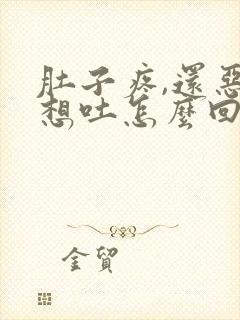 肚子疼,還惡
想吐怎麼回
金貿